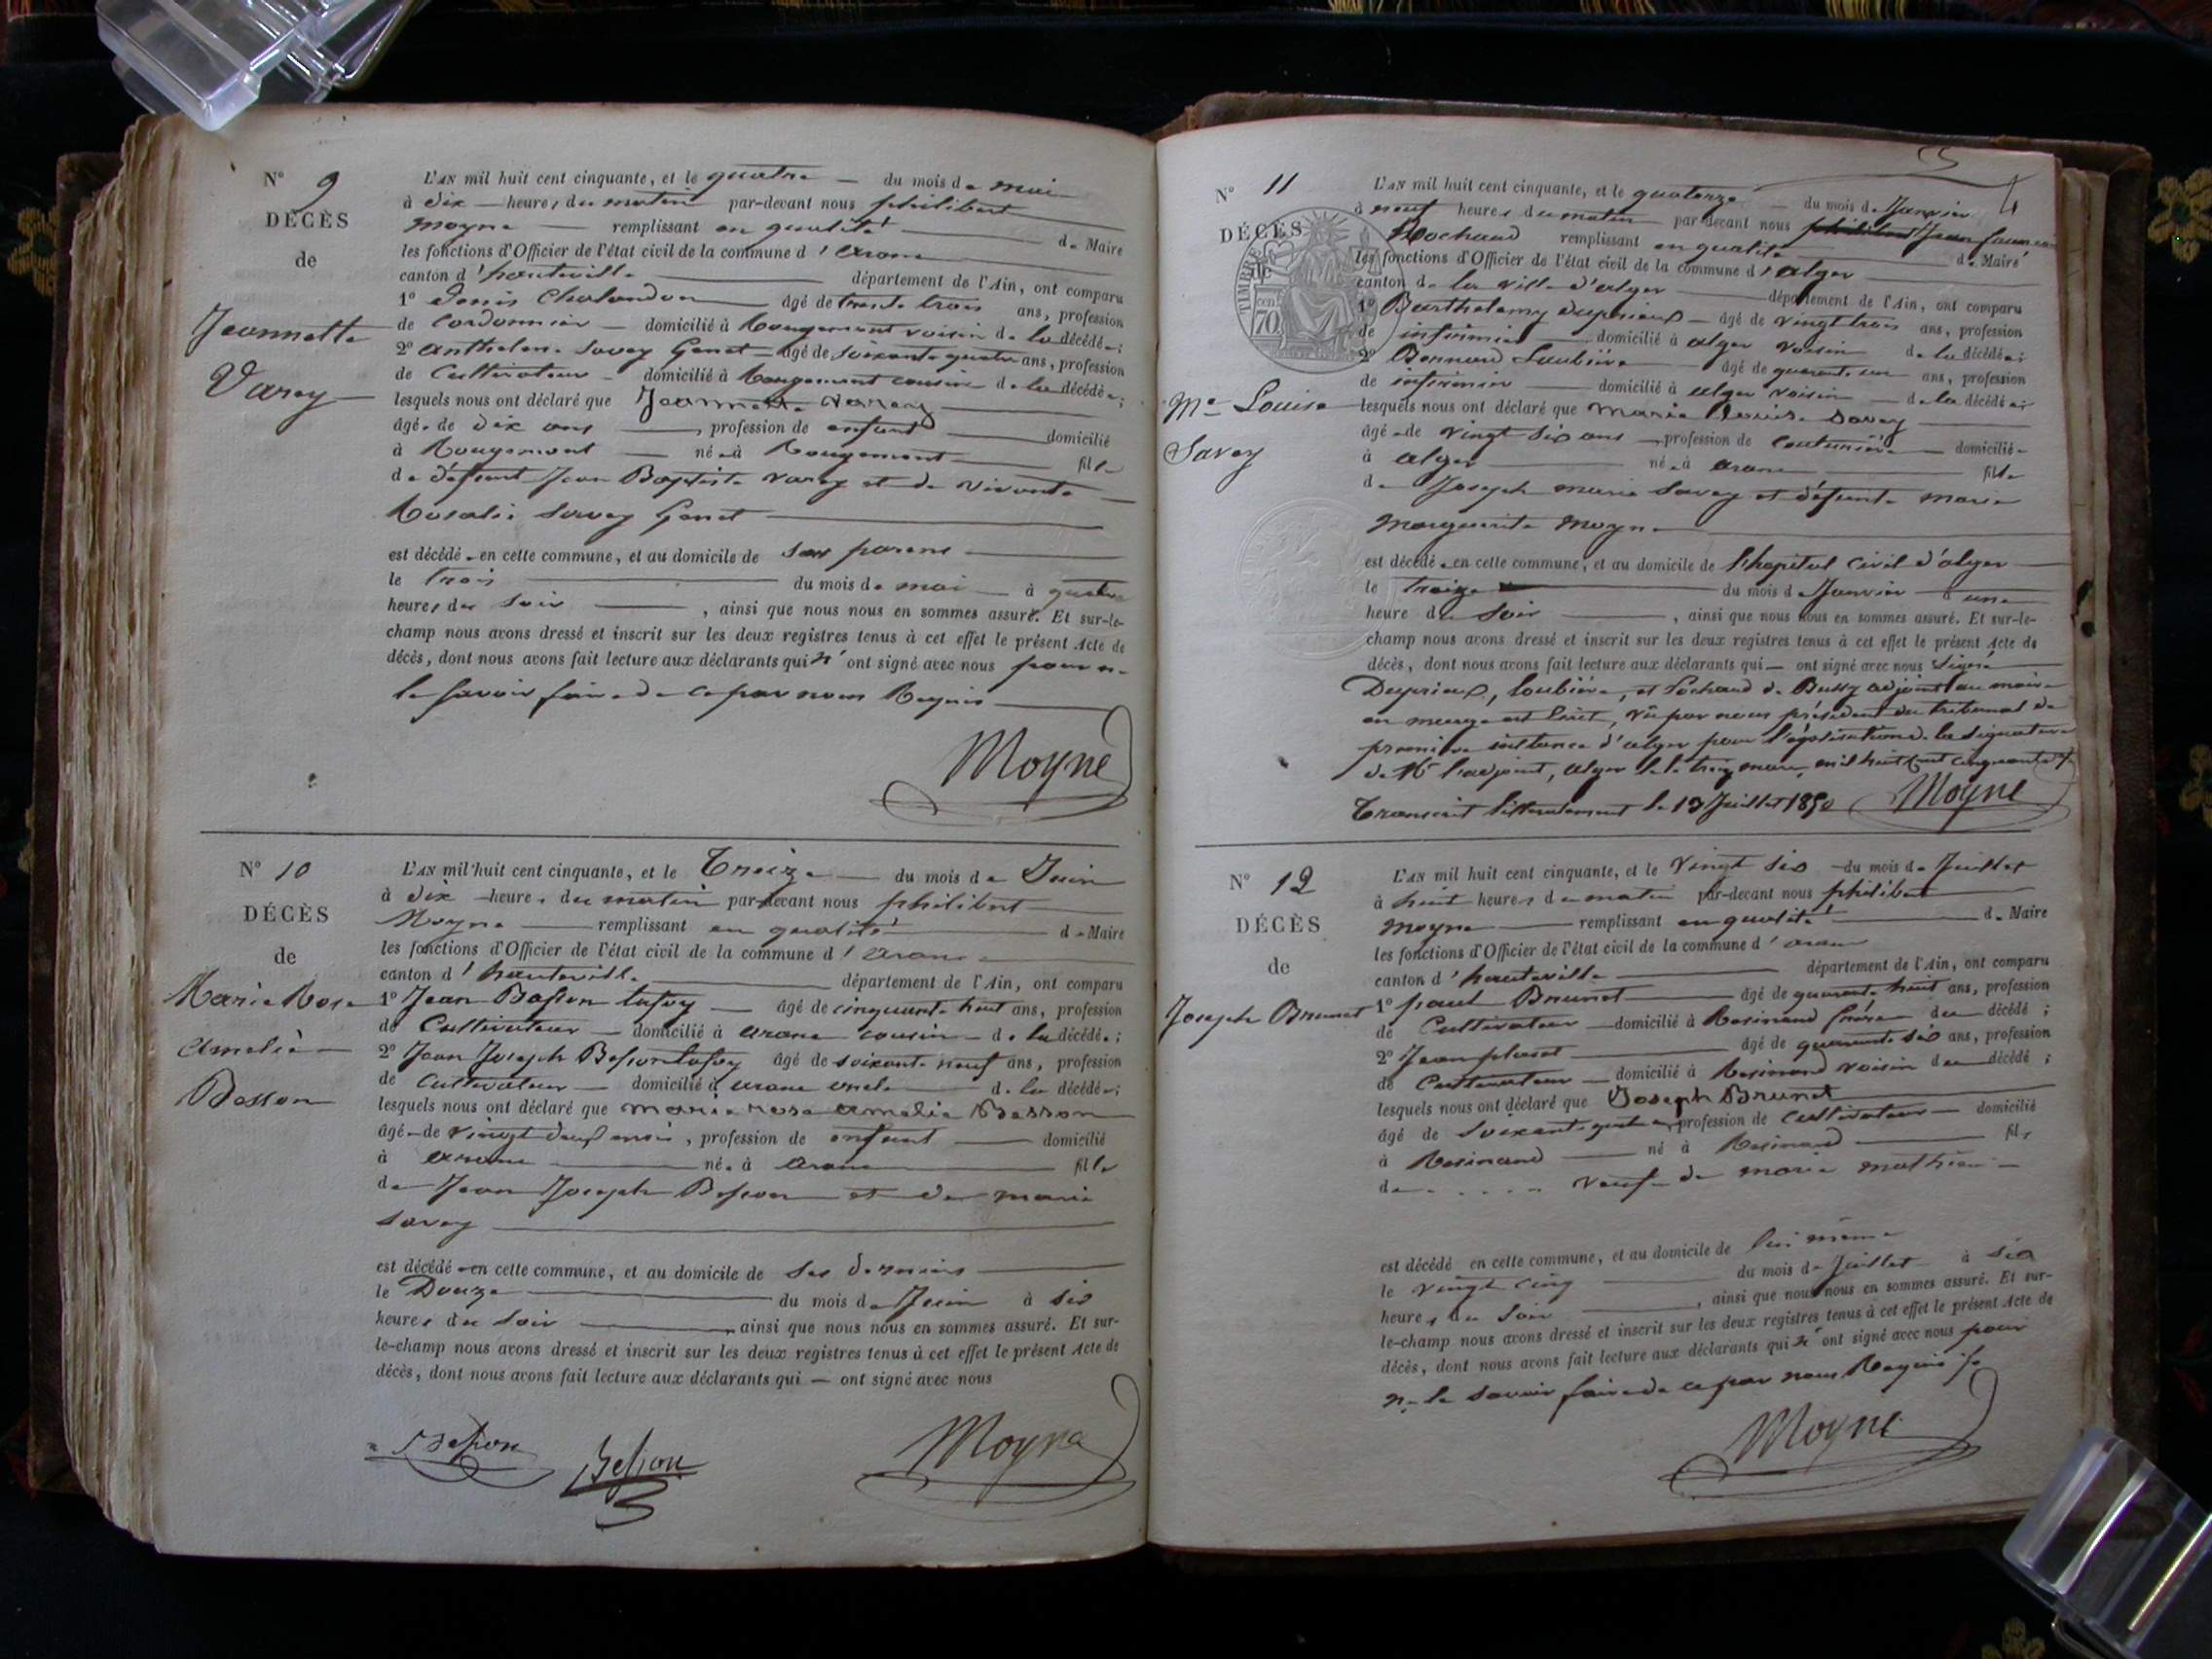 N° 9
DÉCÈS
de
Jeannette
Varey
L'AN mil huit cent cinquante, et le quatre — du mois de mai
à dix heures du matin par-devant nous philibert
moyne remplissant en qualité de Maire
les fonctions d'Officier de l'état civil de la commune d'arane
canton d'hauteville département de l'Ain, ont comparu
1° denis Chalandon âgé de trente trois ans, profession
de Cordonnier domicilié à Rougemont voisin de la décédée;
2° anthelme Savey Genet âgé de soixante quatre ans, profession
de Cultivateur domicilié à Rougemont cousin de la décédée;
lesquels nous ont déclaré que Jeannette Varey
âgée de dix ans, profession de enfant domicilié
à Rougemont née à Rougemont fille
de défunt Jean Baptiste varey et de vivante
Rosalie Savey Genet
est décédée en cette commune, et au domicile de ses parens
le trois du mois de mai à quatre
heures du soir, ainsi que nous nous en sommes assuré. Et sur-le-
champ nous avons dressé et inscrit sur les deux registres tenus à cet effet le présent Acte de
décès, dont nous avons fait lecture aux déclarants qui n'ont signé avec nous pour ne
le savoir faire de ce par nous Requis
Moyne
N° 10
DÉCÈS
de
Marie Rose
Amelie
Besson
L'AN mil huit cent cinquante, et le Treize du mois de Juin
à dix heures du matin par-devant nous philibert
Moyne remplissant en qualité de Maire
les fonctions d'Officier de l'état civil de la commune d'arane
canton d'hauteville département de l'Ain, ont comparu
1° Jean Besson lafoy âgé de cinquante huit ans, profession
de Cultivateur domicilié à arane cousin de la décédée;
2° Jean Joseph Besson lafoy âgé de soixante neuf ans, profession
de Cultivateur domicilié à arane oncle de la décédée;
lesquels nous ont déclaré que marie rose amelie Besson
âgée de vingt deux mois, profession de enfant domicilié
à arane née à arane fille
de Jean Joseph Besson et de marie
Savey
est décédée en cette commune, et au domicile de ses derniers
le Douze du mois de Juin à six
heures du soir, ainsi que nous nous en sommes assuré. Et sur-
le-champ nous avons dressé et inscrit sur les deux registres tenus à cet effet le présent Acte de
décès, dont nous avons fait lecture aux déclarants qui — ont signé avec nous
Besson Besson Moyne
N° 11
DÉCÈS
TIMBRE
70
Me Louise
Savey
L'AN mil huit cent cinquante, et le quatorze du mois de Janvier
à neuf heures du matin par-devant nous philibert Jean
Rochand remplissant en qualité de Maire
les fonctions d'Officier de l'état civil de la commune d'alger
canton de la ville d'alger département de l'Ain, ont comparu
1° Barthelemy Duprieux âgé de vingt trois ans, profession
de infirmier domicilié à alger voisin de la décédée;
2° Bernard Loubière âgé de quarante un ans, profession
de infirmier domicilié à alger voisin de la décédée;
lesquels nous ont déclaré que marie Louise Savey
âgée de vingt six ans profession de Couturière domiciliée
à alger née à arane fille
de Joseph marie Savey et défunte marie
marguerite moyne
est décédée en cette commune, et au domicile de l'hopital civil d'alger
le treize du mois de Janvier à une
heure du soir, ainsi que nous nous en sommes assuré. Et sur-le-
champ nous avons dressé et inscrit sur les deux registres tenus à cet effet le présent Acte de
décès, dont nous avons fait lecture aux déclarants qui — ont signé avec nous signé
Duprieux, Loubière, et Rochand de Bussy adjoint au maire
en marge est écrit, vû par nous président du tribunal de
première instance d'alger pour légalisation de la signature
de Mr l'adjoint, alger le treize mars mil huit cent cinquante
Transcrit littéralement le 13 Juillet 1850 Moyne
N° 12
DÉCÈS
de
Joseph Brunet
L'AN mil huit cent cinquante, et le Vingt six du mois de Juillet
à huit heures du matin par-devant nous philibert
moyne remplissant en qualité de Maire
les fonctions d'Officier de l'état civil de la commune d'arane
canton d'hauteville département de l'Ain, ont comparu
1° paul Brunet âgé de quarante huit ans, profession
de Cultivateur domicilié à Resinand frère du décédé;
2° Jean âgé de quarante six ans, profession
de Cultivateur domicilié à Resinand voisin du décédé;
lesquels nous ont déclaré que Joseph Brunet
âgé de Soixante quatre profession de Cultivateur domicilié
à Resinand né à Resinand fils
de . . . . . veuf de marie mathieu
est décédé en cette commune, et au domicile de lui même
le vingt cinq du mois de Juillet à six
heures du soir, ainsi que nous nous en sommes assuré. Et sur-
le-champ nous avons dressé et inscrit sur les deux registres tenus à cet effet le présent Acte de
décès, dont nous avons fait lecture aux déclarants qui n'ont signé avec nous pour
ne le savoir faire de ce par nous Requis
Moyne